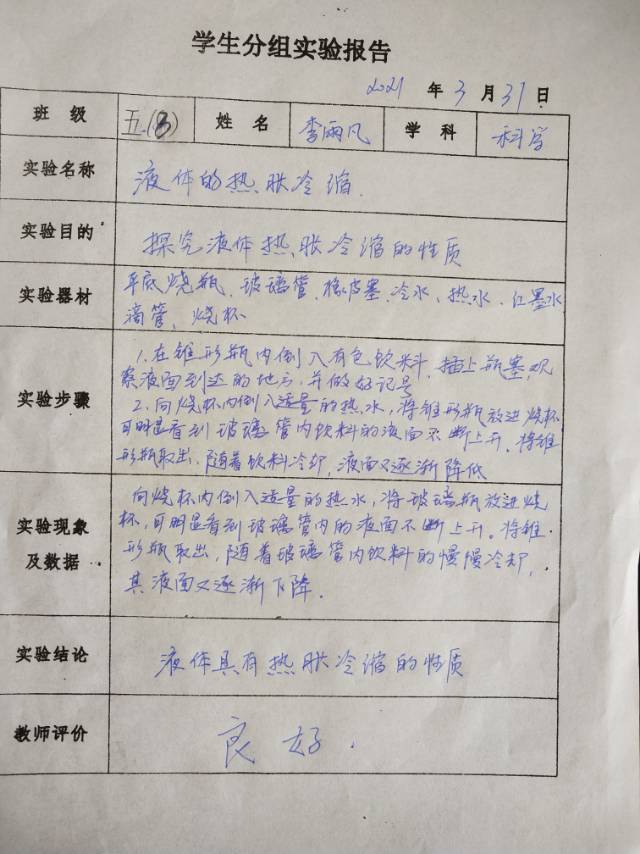 学生分组实验报告
2021 年 3 月 31 日
班 级 五.(3) 姓 名 李雨凡 学 科 科学
实验名称 液体的热胀冷缩.
实验目的 探究液体热胀冷缩的性质
实验器材 平底烧瓶、玻璃管、橡皮塞、冷水、热水、红墨水
滴管、烧杯
实验步骤
1.在锥形瓶内倒入有色饮料,插上瓶塞,观
察液面到达的地方,并做好记号
2.向烧杯内倒入适量的热水,将锥形瓶放进烧杯
可明显看到玻璃管内饮料的液面不断上升.将锥
形瓶取出,随着饮料冷却,液面又逐渐降低
实验现象
及数据
向烧杯内倒入适量的热水,将玻璃瓶放进烧
杯,可明显看到玻璃管内的液面不断上升。将锥
形瓶取出,随着玻璃管内饮料的慢慢冷却,
其液面又逐渐下降.
实验结论 液体具有热胀冷缩的性质
教师评价 良好.